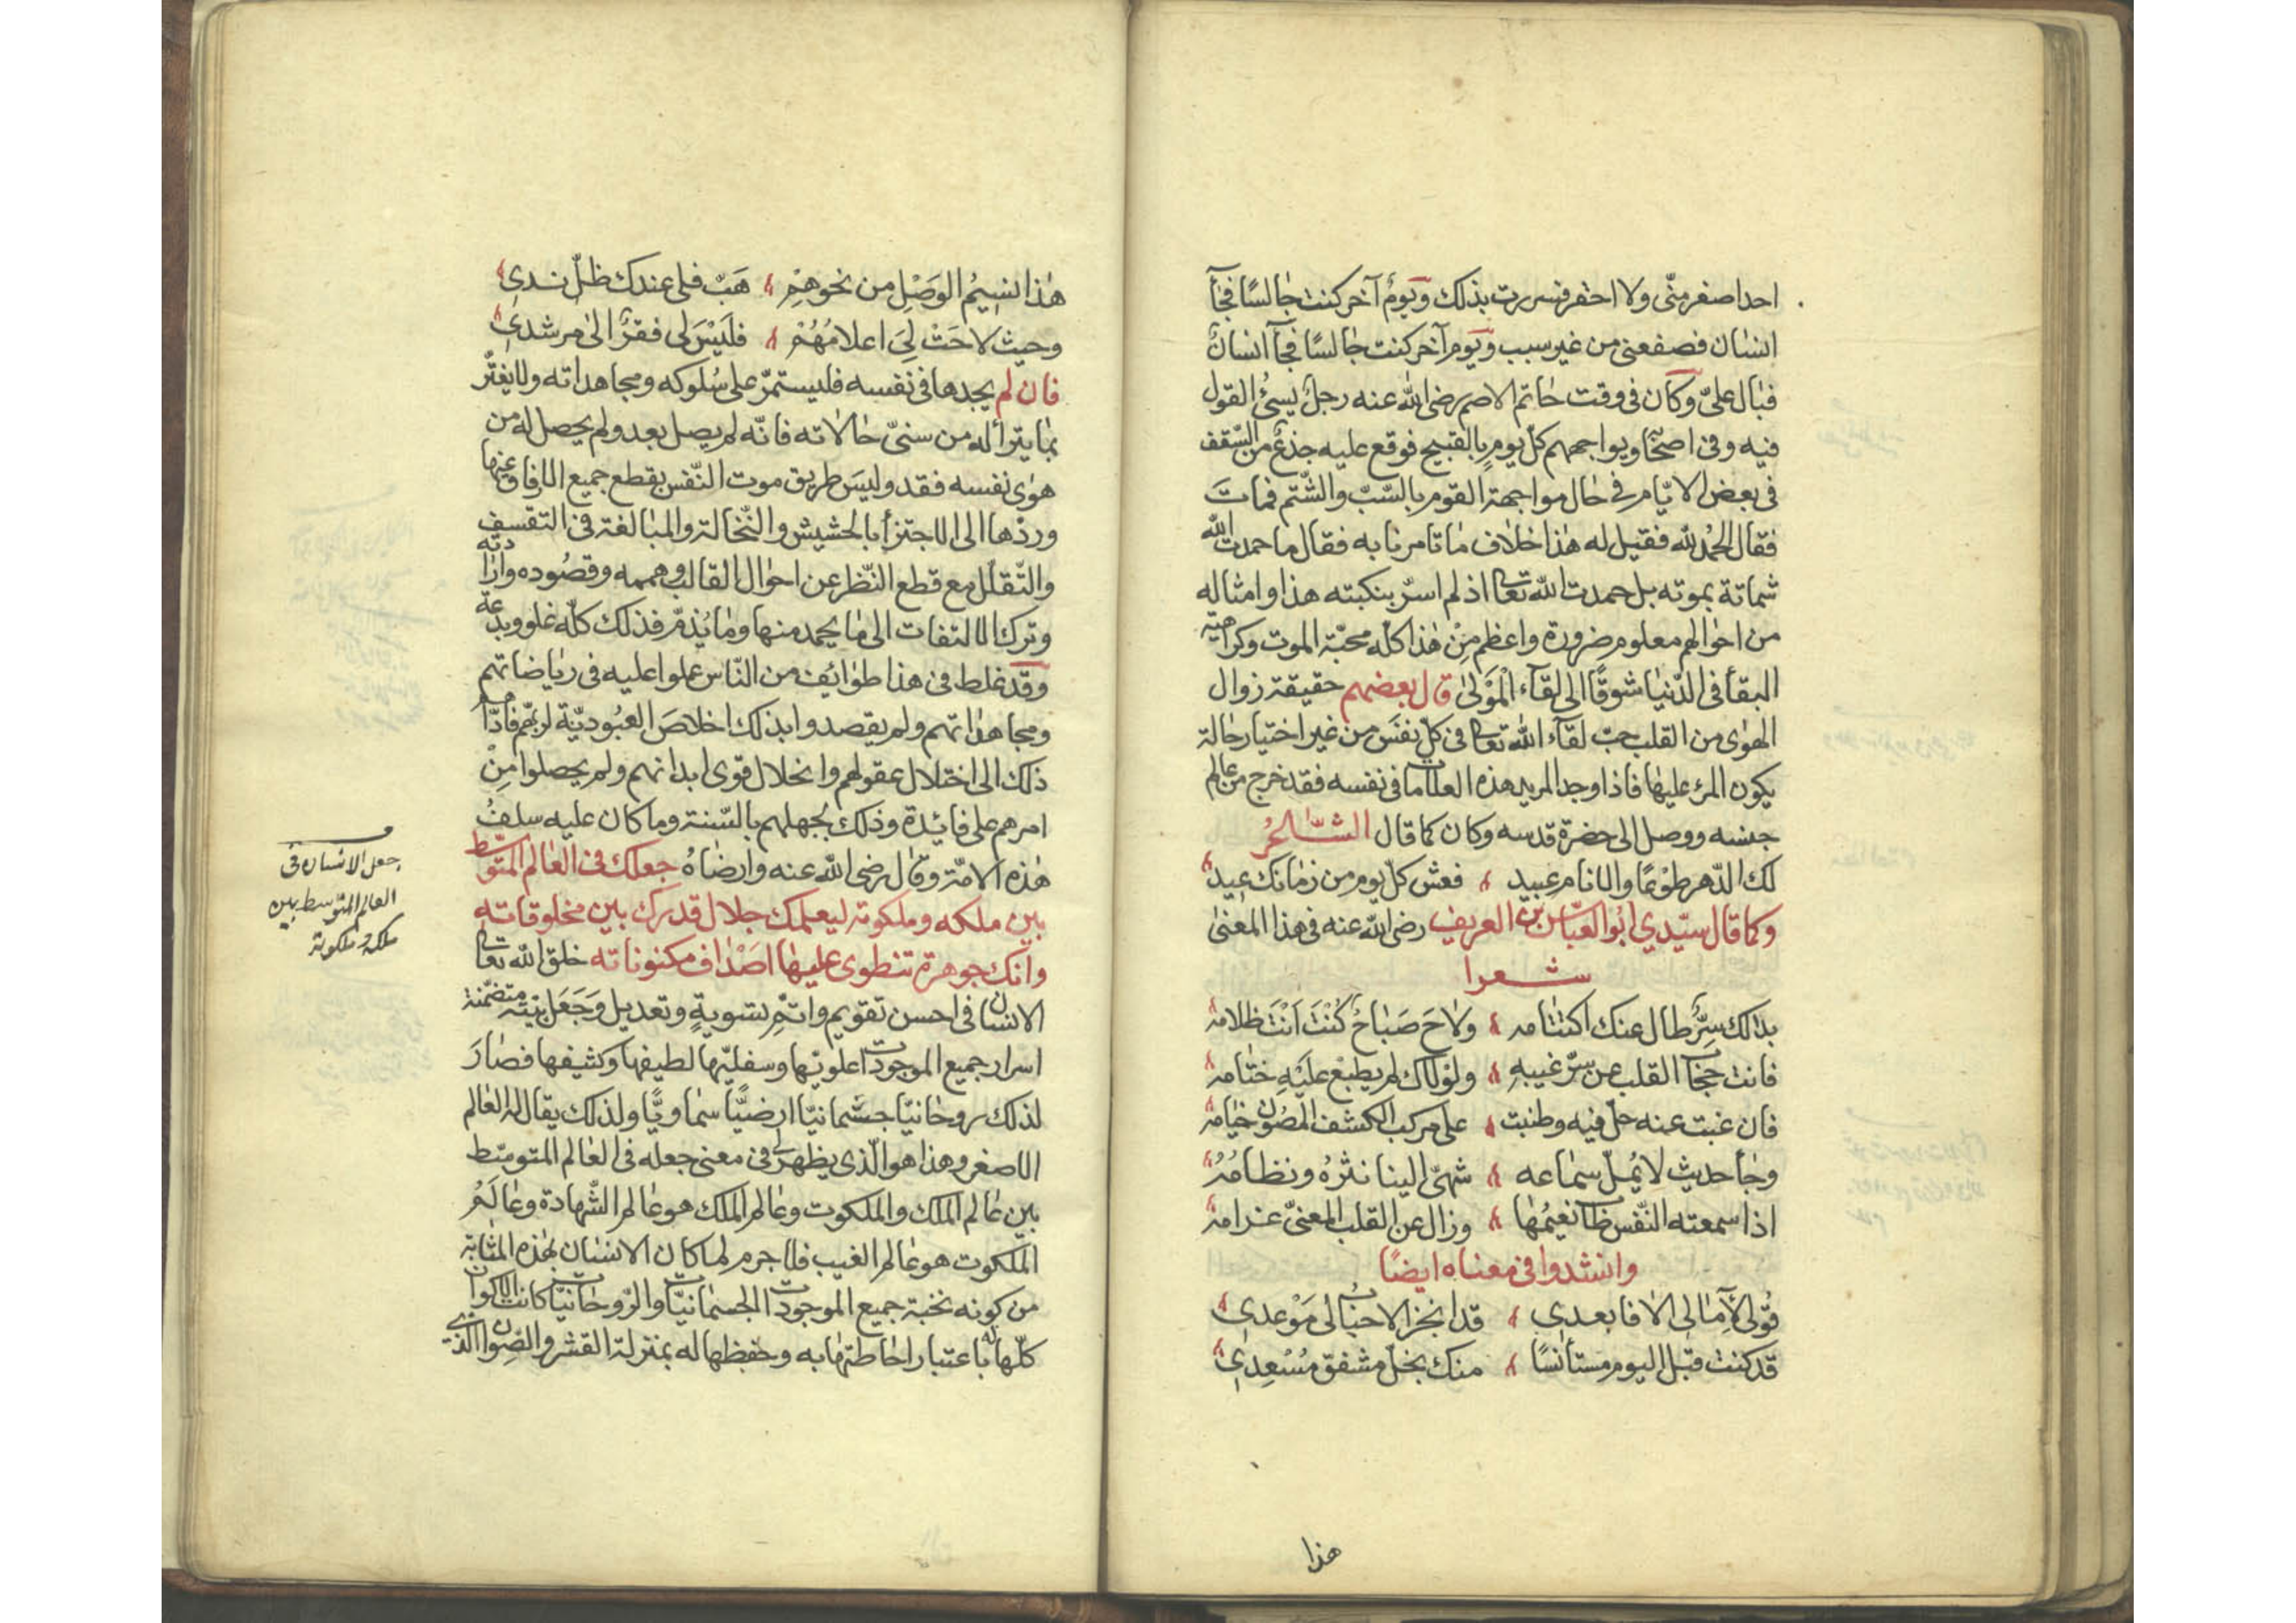 احدا صغر منّى ولا احقر فسررت بذلك ويومٌ آخر كنت جالسًا فجآ
انسان فصفعنى من غير سبب ويوم آخر كنت جالسًا فجآ انسانٌ
فبال علىّ وكان فى وقت حاتم الاصم رضى الله عنه رجلٌ يسئ القول
فيه وفى اصحابه ويواجههم كلّ يومٍ بالقبيح فوقع عليه جذعٌ من السّقف
فى بعض الايّام فى حال مواجهة القوم بالسّبّ والشّتم فماتَ
فقال الحمد لله فقيل له هذا خلاف ما تامرنا به فقال ما حمدت الله
شماتة بموته بل حمدت الله تعا اذ لم اسرّ بنكبته هذا وامثاله
من احوالهم معلوم ضرورة واعظم مِنْ هذا كلّه محبّة الموت وكراهيّة
البقأ فى الدّنيا شوقًا الى لقآء الْمَوْلىٰ قال بعضهم حقيقة زوال
الهوٰى من القلب حبّ لقآء الله تعا فى كلّ نفَسَ من غير اختيار حالة
يكون المرء عليها فاذا وجد المريد هذه العلامات فى نفسه فقد خرج من عالم
جنسه ووصل الى حضرة قدسه وكان كما قال الشّاعرُ
لك الدّهر طوْعًا والانام عبيد فعش كلّ يوم من زمانك عيد
وكما قال سيّدي ابو العبّاس بن العريف رضى الله عنه فى هذا المعنىٰ
شعرا
بدالك سِرٌّ طال عنك اكتتامه ولاحَ صَباحٌ كُنْتَ اَنْتَ ظلامه
فانت حجاب القلب عن سرّ غيبهِ ولوْلاك لم يطبعْ عليْهِ ختامه
فان غبت عنه حلّ فيه وطنبت على مركب الكشف المصُون خيامه
وجأ حديث لا يُملّ سماعه شهىّ الينا نثرهُ ونظامُهُ
اذا سمعته النّفس طاب نعيمُها وزال عن القلب المعنىّ غرامه
وانشدوا فى معناه ايضًا
قُولى لآمالى الا فابعدى قد انجز الاحباب لى مَوْعدى
قد كنت قبل اليوم مستأنسًا منك بخلّ مشفق مُسْعِدى
هذا
هٰذا نسيمُ الوَصْلِ من نحوهِمْ هَبّ فلى عندك ظلّ ندى
وحيث لاحَتْ لِىَ اعلامُهُمْ فلَيْسَ لى فقرٌ الىٰ مرشدى
فان لم يجدها فى نفسه فليستمرّ على سُلوكه ومجاهداته ولا يغترّ
بما يترأ له من سنىّ حالاته فانّه لم يصل بعد ولم يحصل له من
هوٰى نفسه فقد وليسَ طريق موت النّفس بقطع جميع الارفاق عنها
وردّها الى الاجتزأ بالحشيش والنّخالة والمبالغة فى التقسف
والتّقلّل مع قطع النّظر عن احوال القالب وهممه وقصوده وارادته
وترك الالتفات الى ما يحمد منها وما يُذمّ فذلك كلّه غلو وبدعة
وقد غلط فى هذا طوايُف من النّاس عملوا عليه فى رياضاتهم
ومجاهداتهم ولم يقصدوا بذلك اخلاصَ العبُوديّة لربّهم فادّاهم
ذلك الى اختلال عقولهم وانحلال قوٰى ابدانهم ولم يحصلوا مِنْ
امرهم على فائدة وذلك لجهلهم بالسّنة وما كان عليه سلفُ
هٰذه الامّة وقال رضى الله عنه وارضاهُ جعلك فى العالم المتوسّط
بين ملكه وملكوته ليعلمك جلال قدرك بين مخلوقاته
وانك جوهرة تنطوى عليها اصْدٰاف مكنوناته خلق الله تعا
الانسان فى احسن تقويم واتمّ تسويةٍ وتعديل وَجَعَل بنيته متضمّنة
اسرار جميع الموجودات علويّها وسفليّها لطيفها وكثيفها فصارَ
لذلك روحانيّا جسمانيّا ارضيًّا سماويًّا ولذلك يقال له العالم
الاصغر وهذا هو الّذى يظهر لى فى معنى جعله فى العالم المتوسّط
بين عالم الملك والملكوت وعالم الملك هو عالم الشّهادة وعالَمُ
الملكوت هو عالم الغيب فلا جرم لما كان الانسان بهذه المثابة
من كونه نخبة جميع الموجودات الجسمانيّات والرّوحانيّات كانت الاكوان
كلّها له باعتبار احاطتها به وحفظها له بمنزلة القشر والصِوان الذى
جعل الانسان فى
العالم المتوسط بين
ملكه وملكوته